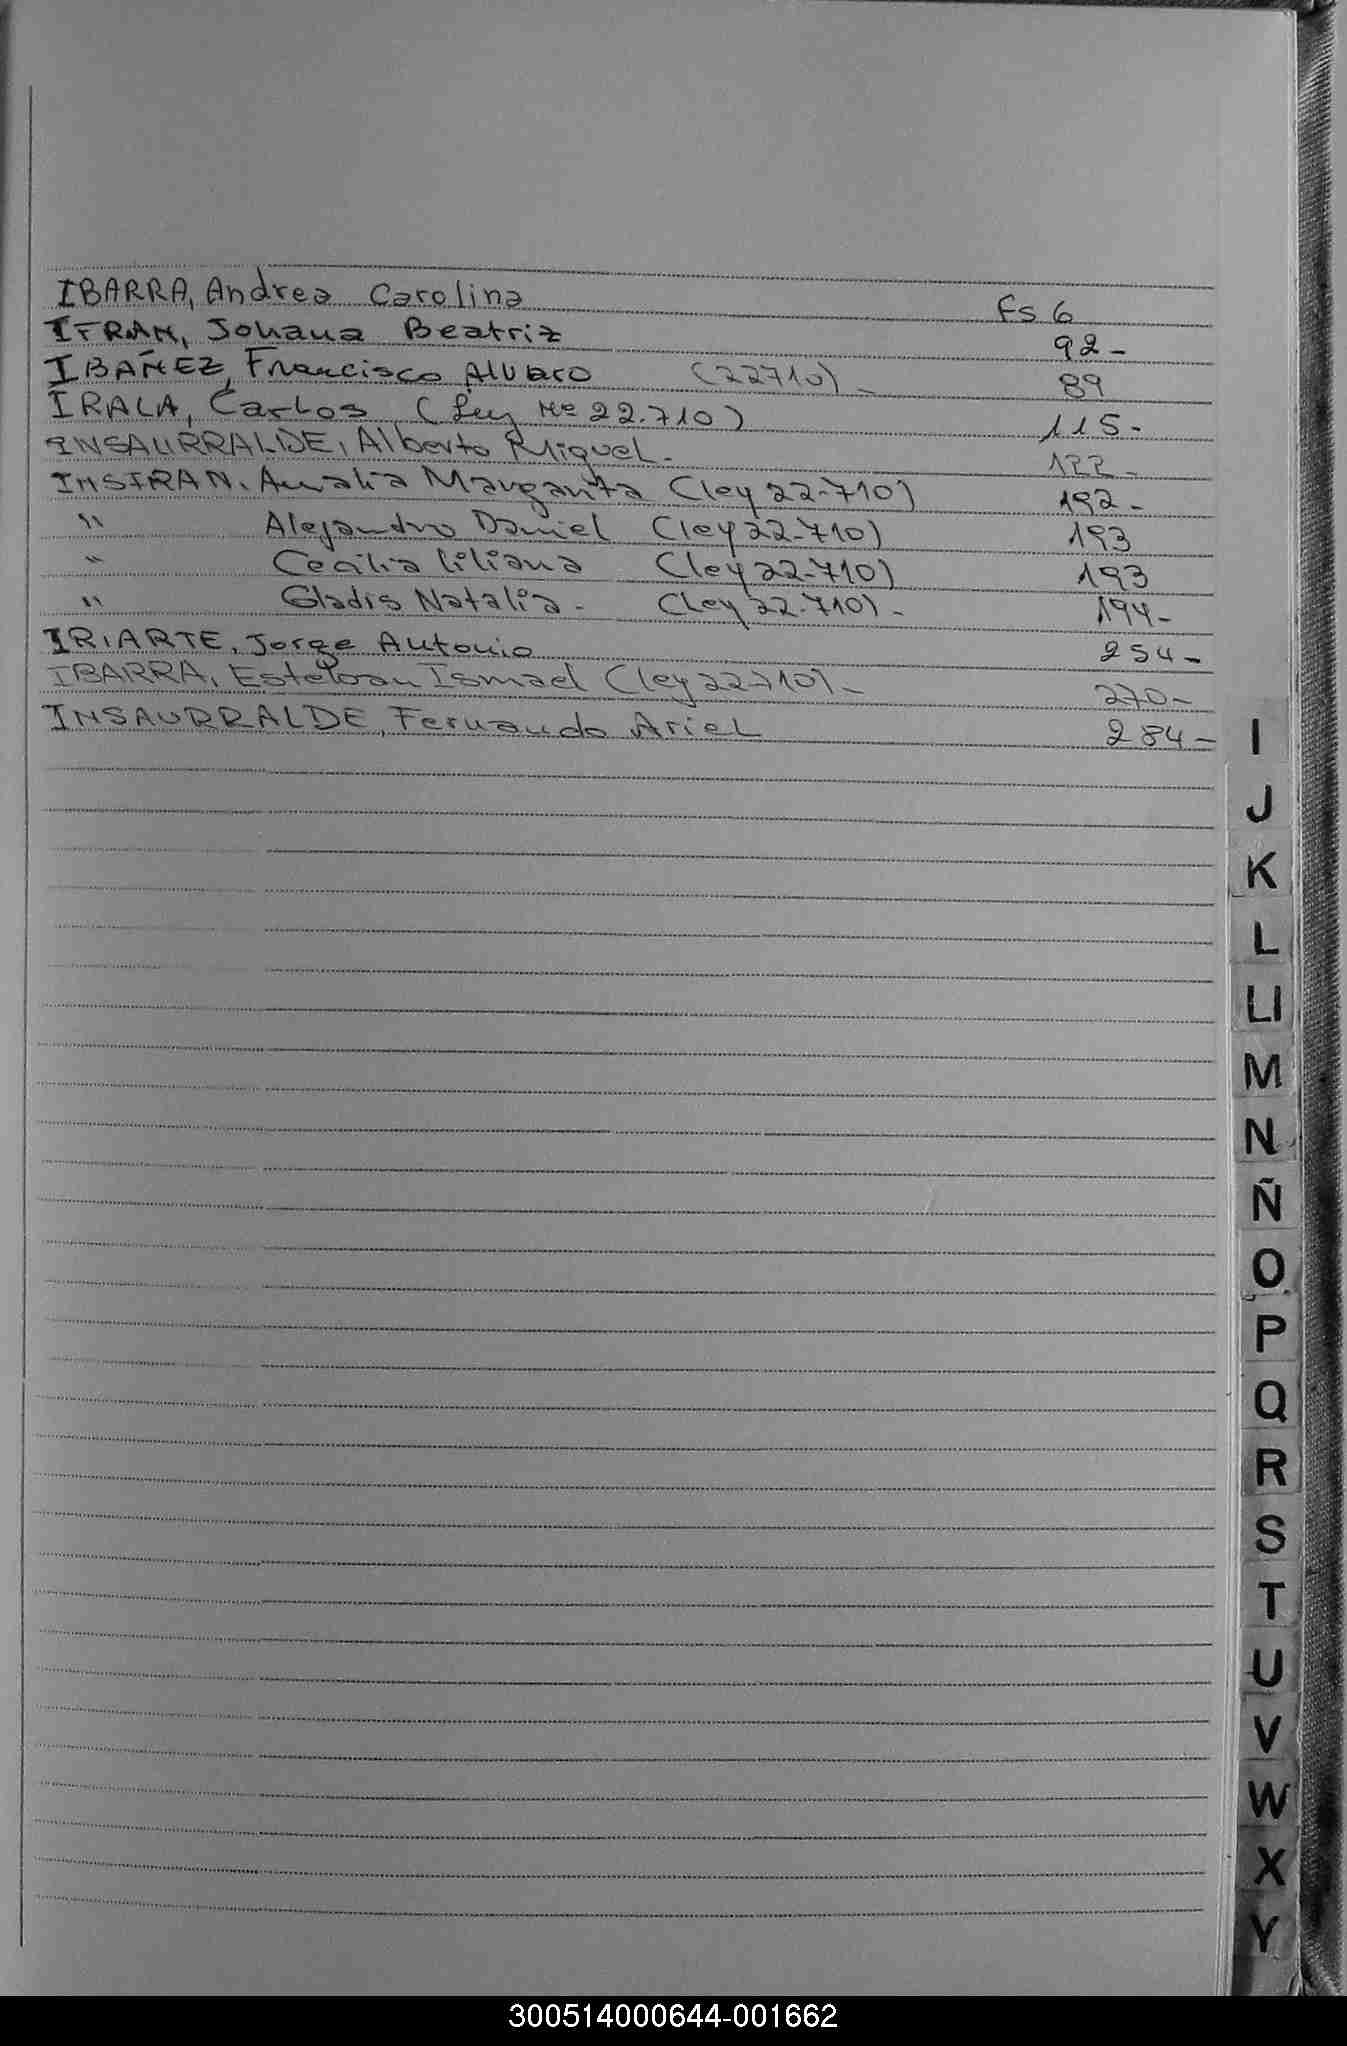 IBARRA, Andrea Carolina fs 6
IFRAN, Johana Beatriz 92-
IBAÑEZ, Francisco Alvaro (22710)- 89
IRALA, Carlos (Ley Nº 22.710) 115-
INSAURRALDE, Alberto Miguel- 122-
INSFRAN, Amalia Margarita (ley 22.710) 192-
" Alejandro Daniel (ley 22.710) 193
" Cecilia liliana (ley 22.710) 193
" Gladis Natalia- (ley 22.710)- 194-
IRIARTE, Jorge Antonio 254-
IBARRA, Esteban Ismael (ley 22710)- 270-
INSAURRALDE, Fernando Ariel 284-
I
J
K
L
Ll
M
N
Ñ
O
P
Q
R
S
T
U
V
W
X
Y
300514000644-001662